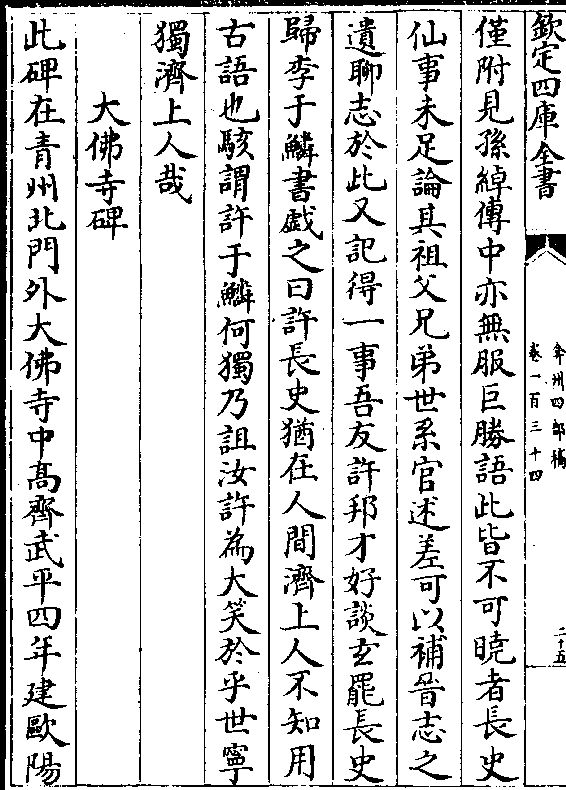 欽定四庫全書
弇州四部稿
卷一百三十四
二十五
僅附見孫綽傳中亦無服巨勝語此皆不可曉者長史
仙事未足論其祖父兄弟世系官述差可以補晉志之
遺聊志於此又記得一事吾友許邦才好談玄罷長史
歸李于鱗書戲之曰許長史猶在人間濟上人不知用
古語也駭謂許于鱗何獨乃詛汝許為大笑於乎世寧
獨濟上人哉
大佛寺碑
此碑在青州北門外大佛寺中高齊武平四年建歐陽